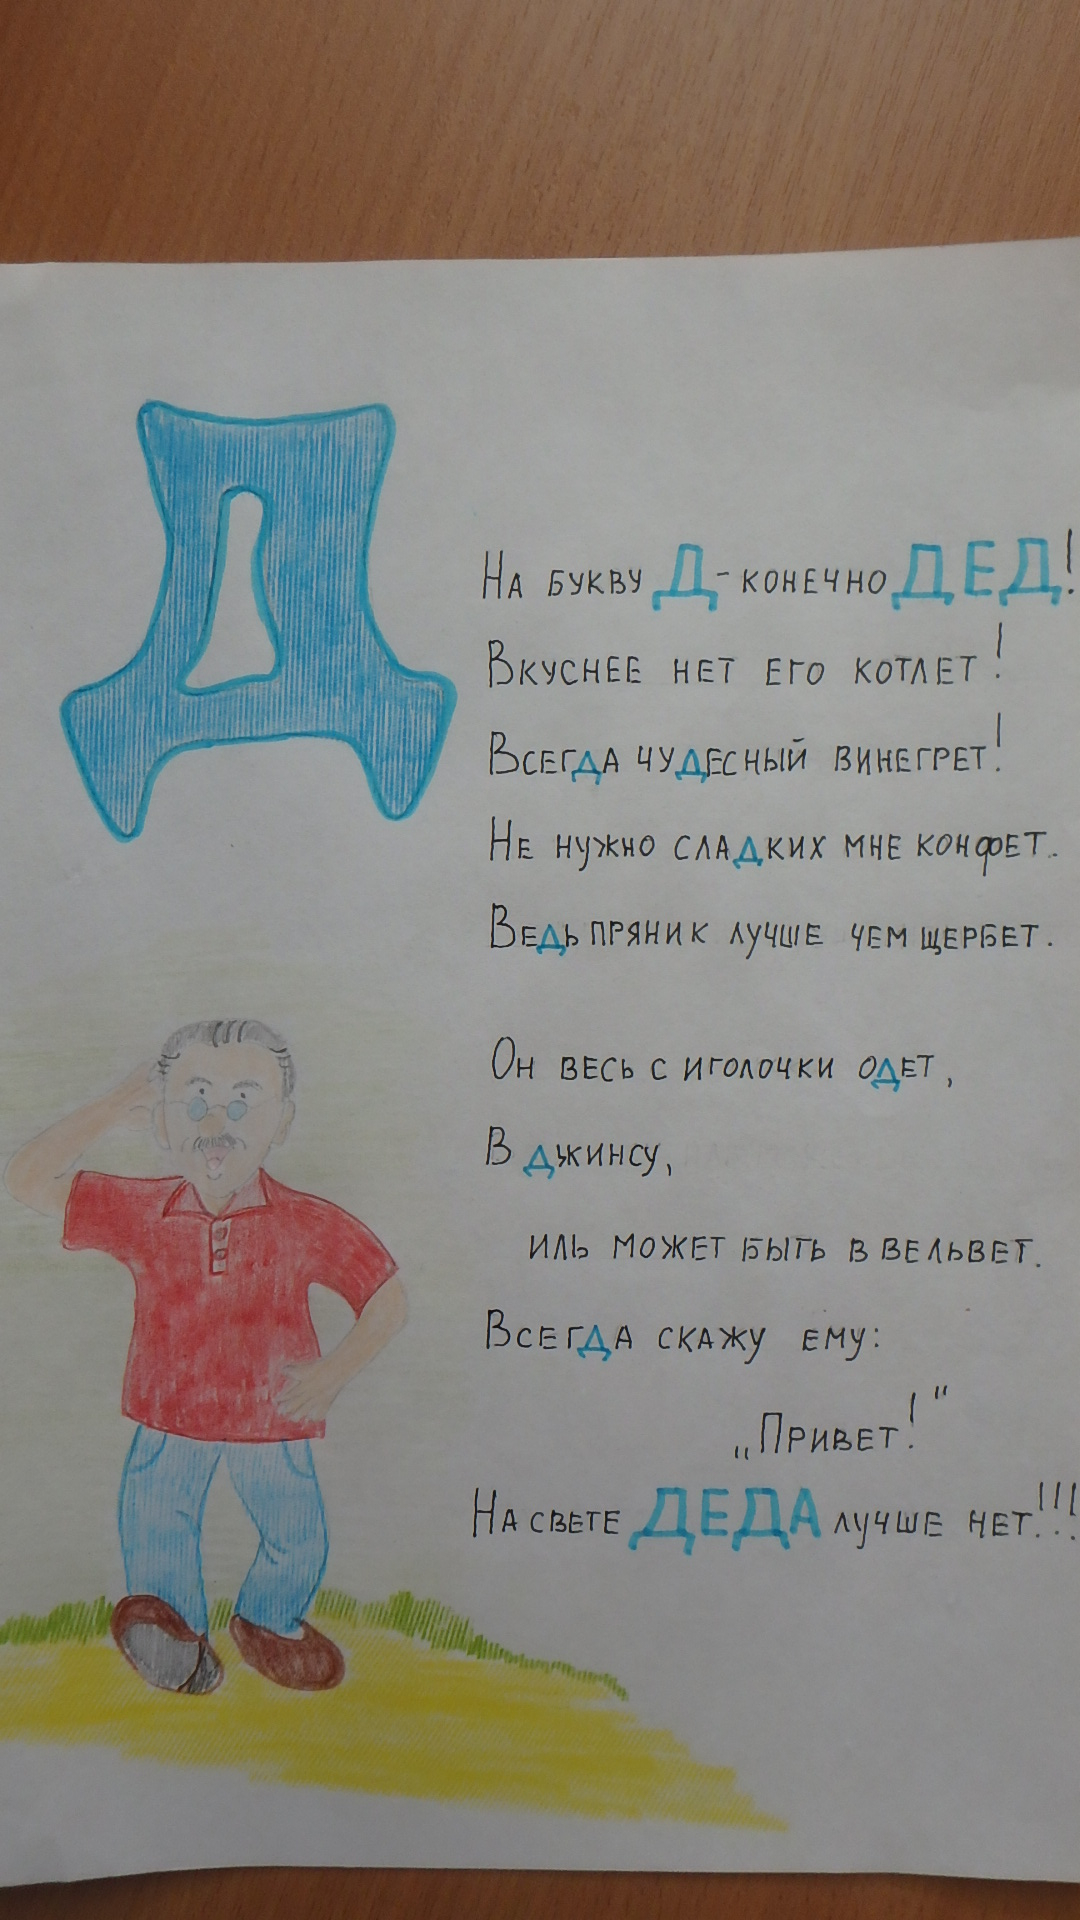 Д
На букву Д - конечно ДЕД!
Вкуснее нет его котлет!
Всегда чудесный винегрет!
Не нужно сладких мне конфет..
Ведь пряник лучше чем щербет.
Он весь с иголочки одет,
В джинсу,
иль может быть в вельвет.
Всегда скажу ему:
„Привет!"
На свете ДЕДА лучше нет!!!